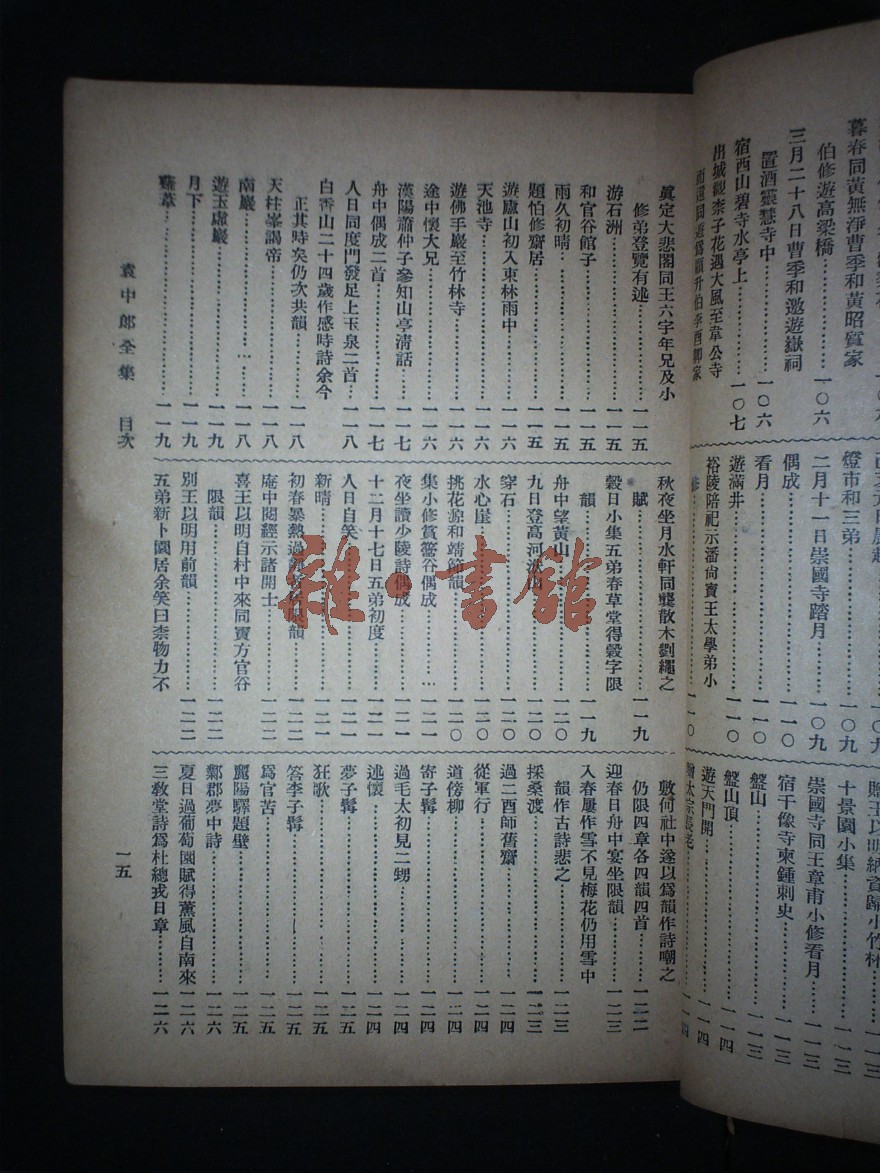 暮春同黃無淨曹季和黃昭質家
伯修遊高梁橋……一〇六
三月二十八日曹季和邀遊嶽祠
置酒靈慧寺中……一〇六
宿西山碧寺水亭上……一〇七
出城觀柰子花遇大風至韋公寺
燈市和三弟……一〇九
二月十一日崇國寺踏月……一〇九
偶成……一一〇
看月……一一〇
遊滿井……一一〇
裕陵陪祀示潘尙寶王太學弟小
修……一一〇
贈王以明納資歸小竹林……一一三
十景園小集……一一三
崇國寺同王章甫小修看月……一一三
宿千像寺柬鍾刺史……一一三
盤山……一一三
盤山頂……一一四
遊天門開……一一四
眞定大悲閣同王六字年兄及小
修弟登覽有述……一一五
游石洲……一一五
和官谷館子……一一五
雨久初晴……一一五
題怕修齋居……一一五
遊廬山初入東林雨中……一一六
天池寺……一一六
遊佛手巖至竹林寺……一一六
途中懷大兄……一一六
漢陽蕭仲子參知山亭淸話……一一七
舟中偶成二首……一一七
人日同度門發足上玉泉二首……一一八
白香山二十四歲作感時詩余今
正其時矣仍次共韻……一一八
天柱峯謁帝……一一八
南巖……一一八
遊玉虛巖……一一九
月下……一一九
……一一九
秋夜坐月水軒同龔散木劉繩之
賦……一一九
穀日小集五弟春草堂得穀字限
韻……一一九
舟中望黃山……一二〇
九日登高河洑山……一二〇
穿石……一二〇
水心崖……一二〇
挑花源和靖節韻……一二〇
集小修篔簹谷偶成……一二一
夜坐讀少陵詩偶成……一二一
十二月十七日五弟初度……一二一
人日自笑……一二一
新晴……一二一
初春暴熱過……限韻……一二二
庵中閱經示諸開士……一二二
喜王以明自村中來同寶方官谷
限韻……一二二
別王以明用前韻……一二二
五弟新卜園居余笑曰柰物力不
敷何社中遂以爲韻作詩嘲之
仍限四章各四韻四首……一二二
迎春日舟中宴坐限韻……一二三
入春屢作雪不見梅花仍用雪中
韻作古詩悲之……一二三
採桑渡……一二三
過二酉師舊齋……一二四
從軍行……一二四
道傍柳……一二四
寄子髯……一二四
過毛太初見二甥……一二四
述懷……一二四
夢子髯……一二五
狂歌……一二五
答李子髯……一二五
爲官苦……一二五
麗陽驛題壁……一二五
鄴郡夢中詩……一二六
夏日過葡萄園賦得薰風自南來……一二六
三敎堂詩爲杜總戎日章……一二六
袁中郎全集　目次
一五
雜·書館